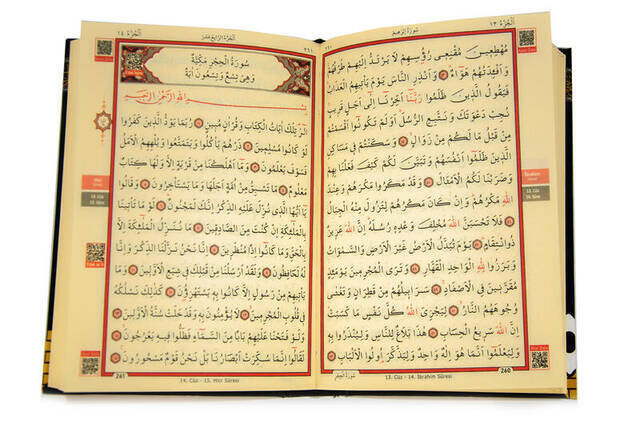 اَلْجُزْءُ ١٣
سُورَةُ اِبْرٰهِيمَ
مُهْطِعِينَ مُقْنِعِى رُؤُسِهِمْ لَا يَرْتَدُّ اِلَيْهِمْ طَرْفُهُمْ
وَاَفْئِدَتُهُمْ هَوَاءٌ وَاَنْذِرِ النَّاسَ يَوْمَ يَأْتِيهِمُ الْعَذَابُ
فَيَقُولُ الَّذِينَ ظَلَمُوا رَبَّنَا اَخِّرْنَا اِلٰى اَجَلٍ قَرِيبٍ
نُجِبْ دَعْوَتَكَ وَنَتَّبِعِ الرُّسُلَ اَوَلَمْ تَكُونُوا اَقْسَمْتُمْ
مِنْ قَبْلُ مَا لَكُمْ مِنْ زَوَالٍ وَسَكَنْتُمْ فِى مَسَاكِنِ
الَّذِينَ ظَلَمُوا اَنْفُسَهُمْ وَتَبَيَّنَ لَكُمْ كَيْفَ فَعَلْنَا بِهِمْ
وَضَرَبْنَا لَكُمُ الْاَمْثَالَ وَقَدْ مَكَرُوا مَكْرَهُمْ وَعِنْدَ
اللّٰهِ مَكْرُهُمْ وَاِنْ كَانَ مَكْرُهُمْ لِتَزُولَ مِنْهُ الْجِبَالُ
فَلَا تَحْسَبَنَّ اللّٰهَ مُخْلِفَ وَعْدِهِ رُسُلَهُ اِنَّ اللّٰهَ عَزِيزٌ
ذُو انْتِقَامٍ يَوْمَ تُبَدَّلُ الْاَرْضُ غَيْرَ الْاَرْضِ وَالسَّمٰوَاتُ
وَبَرَزُوا لِلّٰهِ الْوَاحِدِ الْقَهَّارِ وَتَرَى الْمُجْرِمِينَ يَوْمَئِذٍ
مُقَرَّنِينَ فِى الْاَصْفَادِ سَرَابِيلُهُمْ مِنْ قَطِرَانٍ وَتَغْشٰى
وُجُوهَهُمُ النَّارُ لِيَجْزِىَ اللّٰهُ كُلَّ نَفْسٍ مَا كَسَبَتْ
اِنَّ اللّٰهَ سَرِيعُ الْحِسَابِ هٰذَا بَلَاغٌ لِلنَّاسِ وَلِيُنْذَرُوا بِهِ
وَلِيَعْلَمُوا اَنَّمَا هُوَ اِلٰهٌ وَاحِدٌ وَلِيَذَّكَّرَ اُولُوا الْاَلْبَابِ
İbrahim
13. Cüz
14. Sûre
سُورَةُ الْحِجْرِ
13. Cüz - 14. İbrahim Sûresi
260
اَلْجُزْءُ الرَّابِعَ عَشَرَ
اَلْجُزْءُ ١٤
٢٦١
سُورَةُ الْحِجْرِ مَكِّيَّةٌ
وَهِىَ تِسْعٌ وَتِسْعُونَ اٰيَةً
بِسْمِ اللّٰهِ الرَّحْمٰنِ الرَّحِيمِ
الٓرٰ تِلْكَ اٰيَاتُ الْكِتَابِ وَقُرْاٰنٍ مُبِينٍ رُبَمَا يَوَدُّ الَّذِينَ كَفَرُوا
لَوْ كَانُوا مُسْلِمِينَ ذَرْهُمْ يَأْكُلُوا وَيَتَمَتَّعُوا وَيُلْهِهِمُ الْاَمَلُ
فَسَوْفَ يَعْلَمُونَ وَمَا اَهْلَكْنَا مِنْ قَرْيَةٍ اِلَّا وَلَهَا كِتَابٌ
مَعْلُومٌ مَا تَسْبِقُ مِنْ اُمَّةٍ اَجَلَهَا وَمَا يَسْتَأْخِرُونَ وَقَالُوا
يَا اَيُّهَا الَّذِى نُزِّلَ عَلَيْهِ الذِّكْرُ اِنَّكَ لَمَجْنُونٌ لَوْ مَا تَأْتِينَا
بِالْمَلٰئِكَةِ اِنْ كُنْتَ مِنَ الصَّادِقِينَ مَا نُنَزِّلُ الْمَلٰئِكَةَ اِلَّا
بِالْحَقِّ وَمَا كَانُوا اِذًا مُنْظَرِينَ اِنَّا نَحْنُ نَزَّلْنَا الذِّكْرَ وَاِنَّا
لَهُ لَحَافِظُونَ وَلَقَدْ اَرْسَلْنَا مِنْ قَبْلِكَ فِى شِيَعِ الْاَوَّلِينَ وَمَا
يَأْتِيهِمْ مِنْ رَسُولٍ اِلَّا كَانُوا بِهِ يَسْتَهْزِؤُنَ كَذٰلِكَ نَسْلُكُهُ
فِى قُلُوبِ الْمُجْرِمِينَ لَا يُؤْمِنُونَ بِهِ وَقَدْ خَلَتْ سُنَّةُ الْاَوَّلِينَ
وَلَوْ فَتَحْنَا عَلَيْهِمْ بَابًا مِنَ السَّمَاءِ فَظَلُّوا فِيهِ يَعْرُجُونَ
لَقَالُوا اِنَّمَا سُكِّرَتْ اَبْصَارُنَا بَلْ نَحْنُ قَوْمٌ مَسْحُورُونَ
Hicr
14. Cüz
15. Sûre
261
14. Cüz - 15. Hicr Sûresi